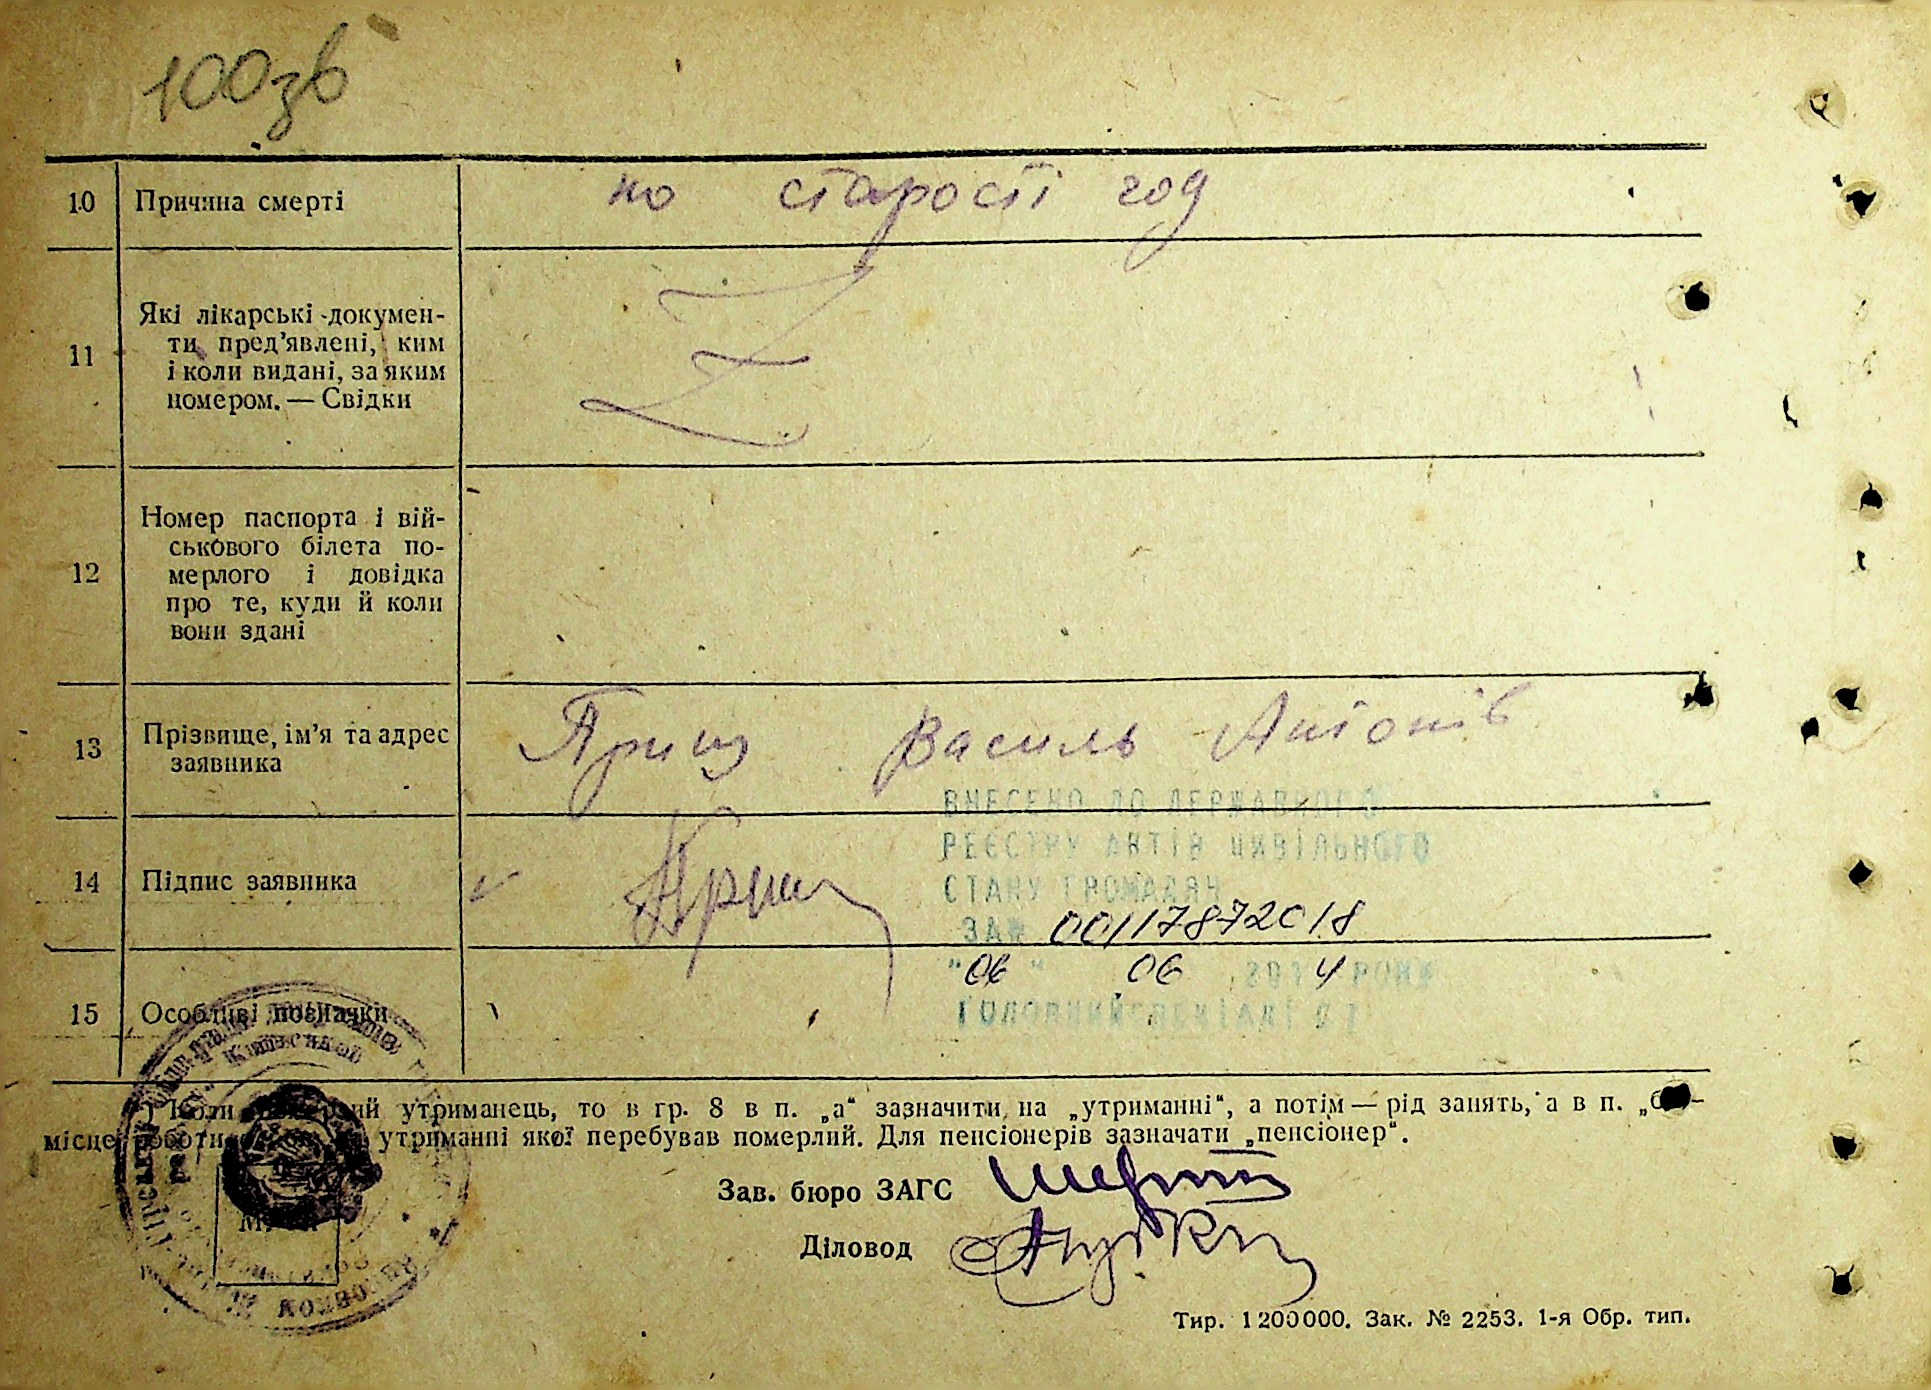 100зв
10 Причина смерті по старості год
11 Які лікарські документи
ти пред'явлені, ким
і коли видані, за яким
номером. — Свідки
12 Номер паспорта і вій-
ськового білета по-
мерлого і довідка
про те, куди й коли
вони здані
13 Прізвище, ім'я та адрес
заявника
Василь Антонів
ВНЕСЕНО ДО ДЕРЖАВНОГО
РЕЄСТРУ АКТІВ ЦИВІЛЬНОГО
14 Підпис заявника
СТАНУ ГРОМАДЯН
ЗА № 00117872018
"06" 06 2014 РОКУ
15 Особливі позначки
ГОЛОВНИЙ СПЕЦІАЛІСТ
Київської
) Коли утриманець, то в гр. 8 в п. „а“ зазначити на „утриманні“, а потім — рід занять, а в п.
місце роботи утриманні якої перебував померлий. Для пенсіонерів зазначати „пенсіонер“.
Зав. бюро ЗАГС
Діловод
Тир. 1200000. Зак. № 2253. 1-я Обр. тип.